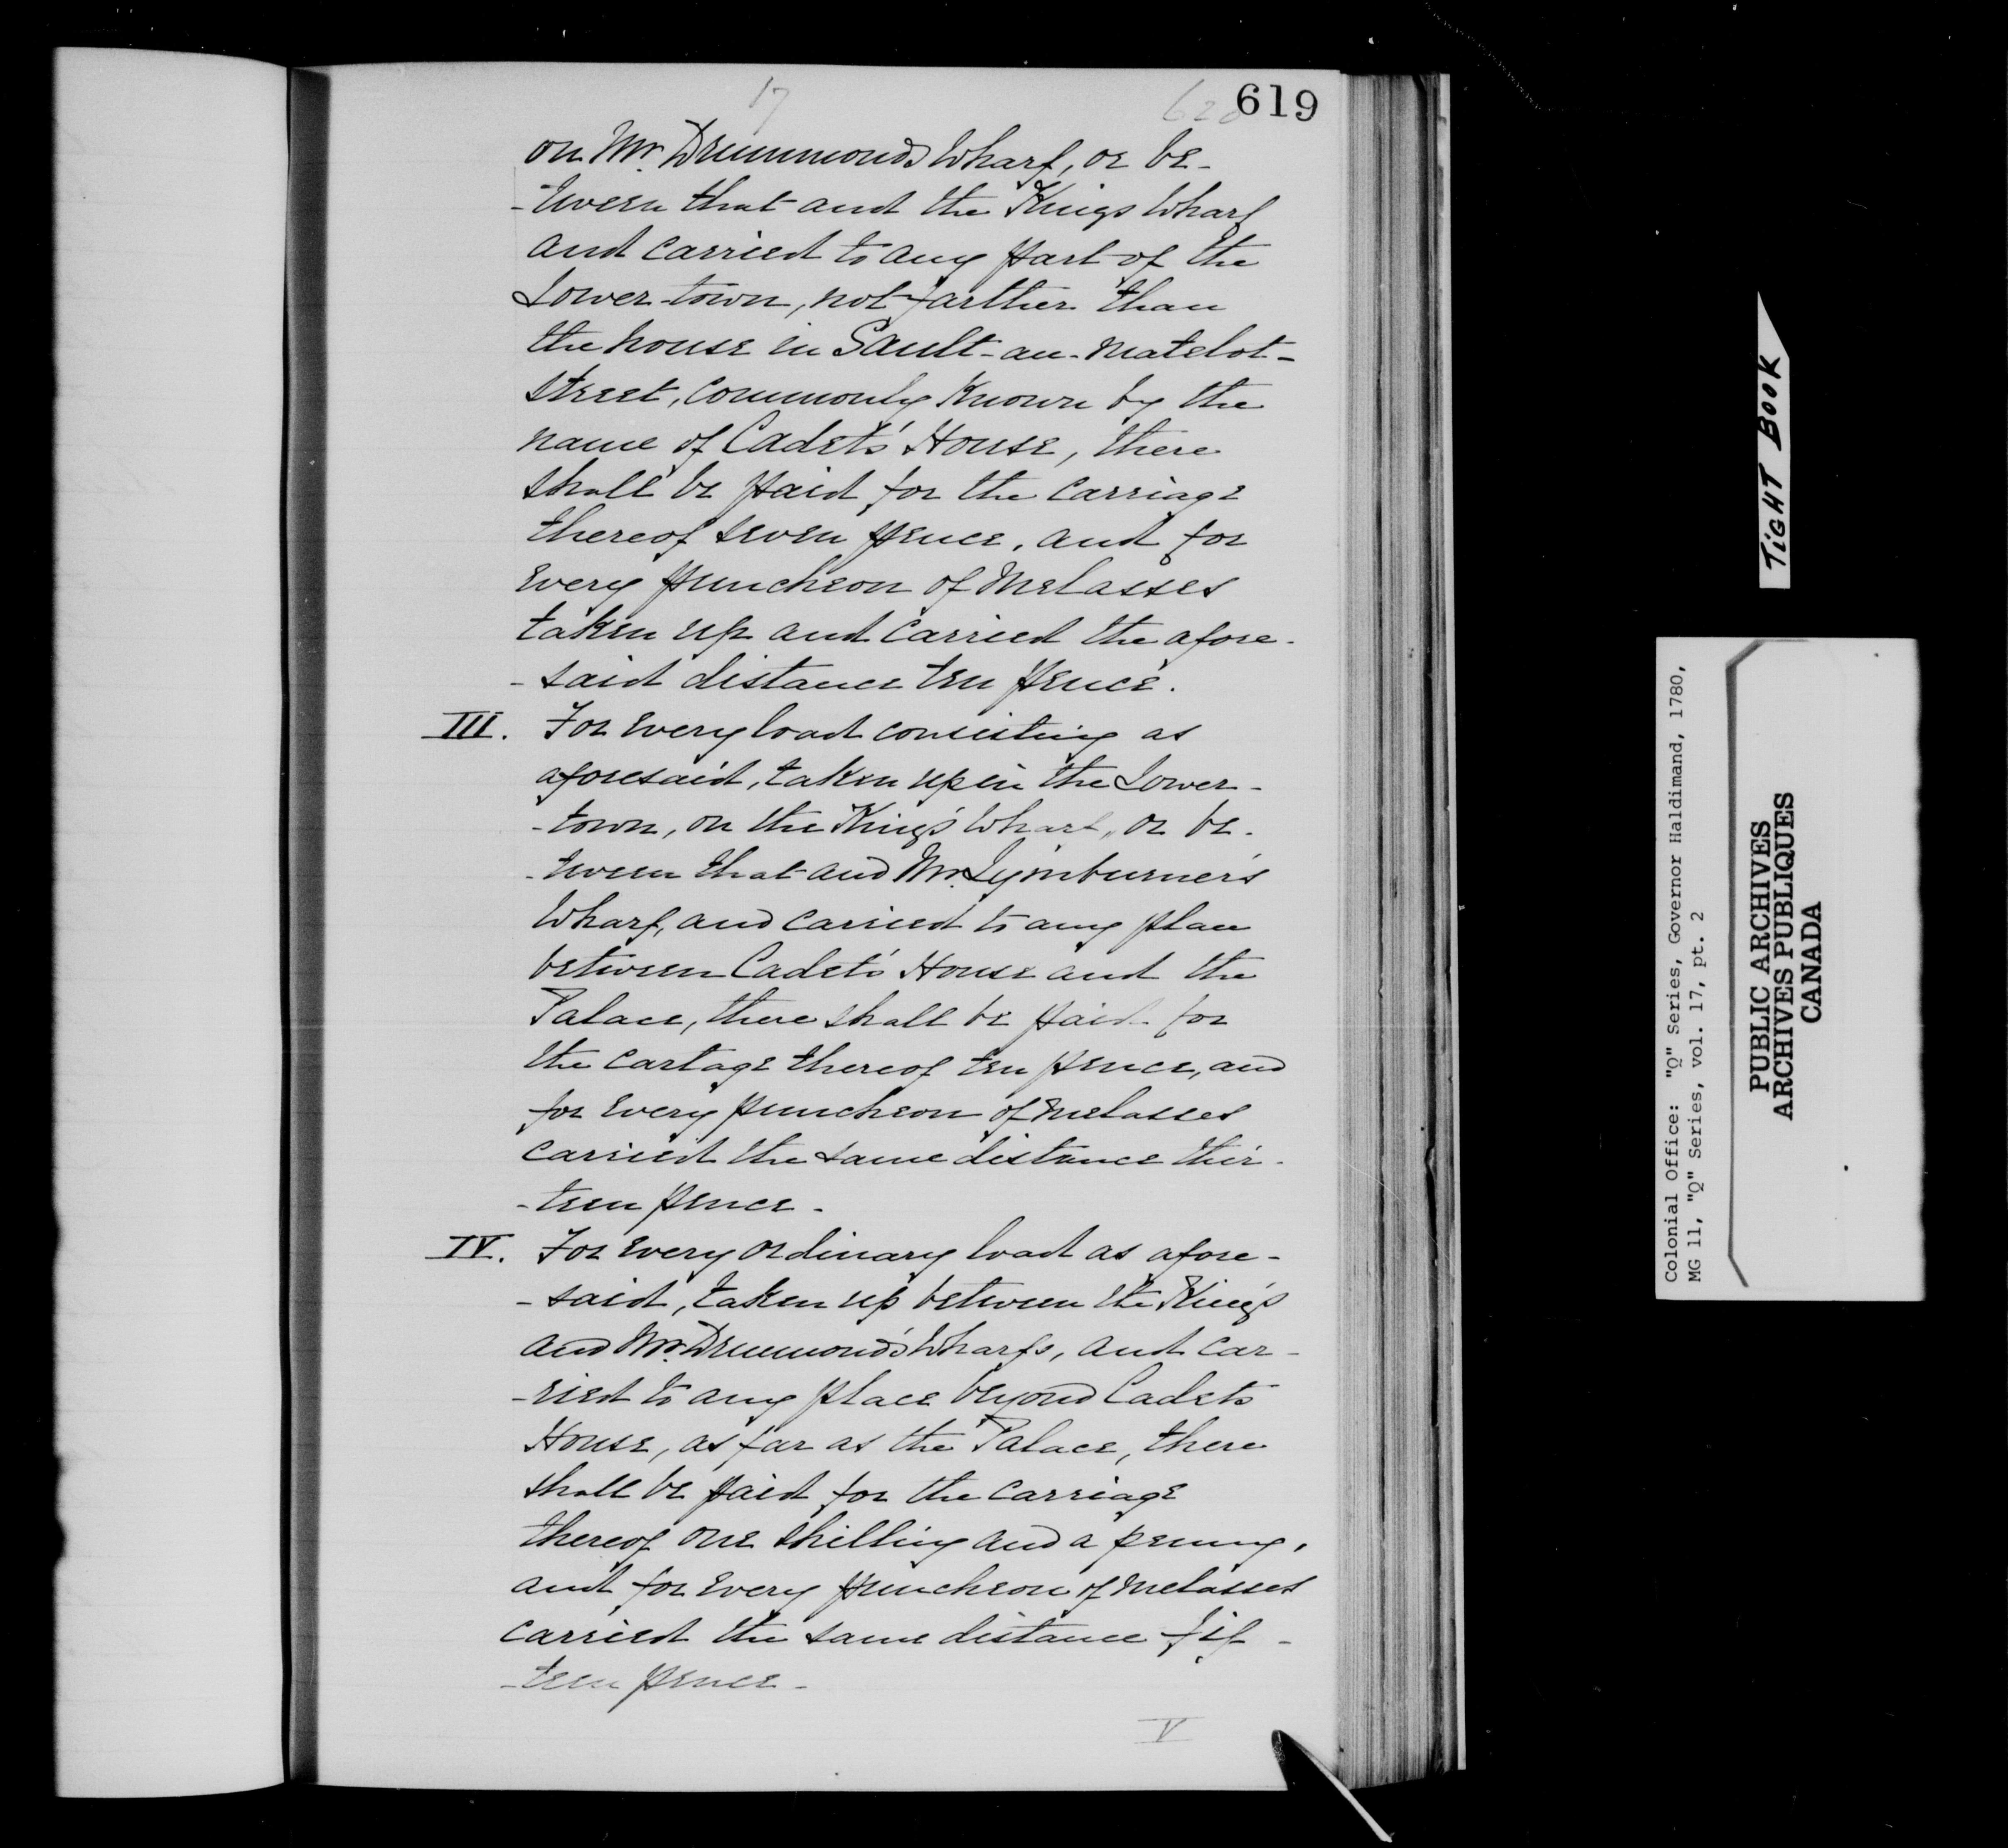 17
628 619
on Mr. Drummonds Wharf, or be-
-tween that and the Kings Wharf
and carried to any part of the
Lower-town, not farther than
the house in Sault-au-Matelot-
street, commonly known by the
name of Cadet's House, there
shall be paid for the carriage
thereof seven pence, and for
every puncheon of Melasses
taken up and carried the afore-
-said distance ten pence.
III. For every load consisting as
aforesaid, taken up in the Lower-
-town, on the King's Wharf, or be-
-tween that and Mr. Lymburner's
Wharf, and carried to any place
between Cadet's House and the
Palace, there shall be paid for
the cartage thereof ten pence, and
for every puncheon of Melasses
carried the same distance thir-
-teen pence.
IV. For every ordinary load as afore-
-said, taken up between the King's
and Mr. Drummond's Wharfs, and car-
-ried to any place beyond Cadets
House, as far as the Palace, there
shall be paid for the carriage
thereof one shilling and a penny,
and for every puncheon of Melasses
carried the same distance fif-
-teen pence-
V
TIGHT BOOK
Colonial Office: "Q" Series, Governor Haldimand, 1780,
MG 11, "Q" Series, vol. 17, pt. 2
PUBLIC ARCHIVES
ARCHIVES PUBLIQUES
CANADA